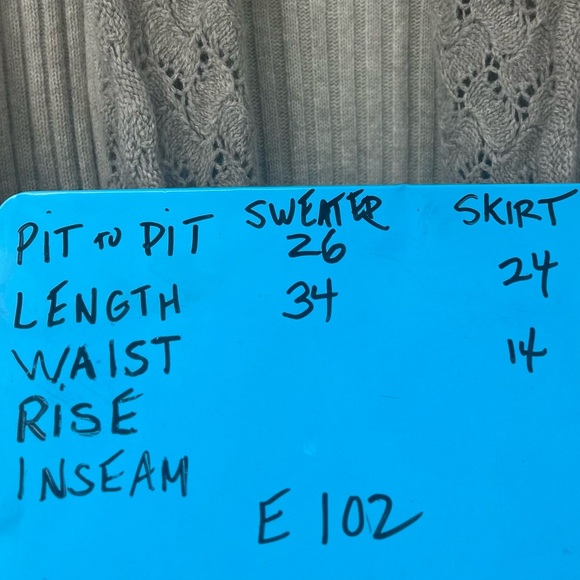 SWEATER SKIRT
PIT TO PIT 26
LENGTH 34 24
WAIST 14
RISE
INSEAM
E 102